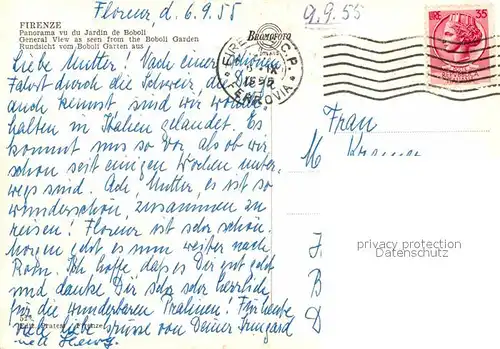 Florenz, d. 6.9.55
9.9.55
FIRENZE
Panorama vu du Jardin de Boboli
General View as seen from the Boboli Garden
Rundsicht vom Boboli Garten aus
BROMOFOTO
FERROVIA
LIRE 35
Liebe Mutter! Nach einer schönen
Fahrt durch die Schweiz, die Du ja
auch kennst, sind wir
halten in Italien gelandet. Es
kommt uns so vor, als ob wir
schon seit einigen Wochen unter-
wegs sind. Ach, Mutter, es ist so
wunderschön, zusammen zu
reisen! Florenz ist sehr schön.
Morgen geht es nun weiter nach
Rom. Ich hoffe, dass es Dir gut geht
und danke Dir sehr sehr herzlich
für die wunderbaren Pralinen! Für heute
viele liebe Grüsse von Deiner Irmgard
Frau
M
J
B
D
privacy protection
Datenschutz